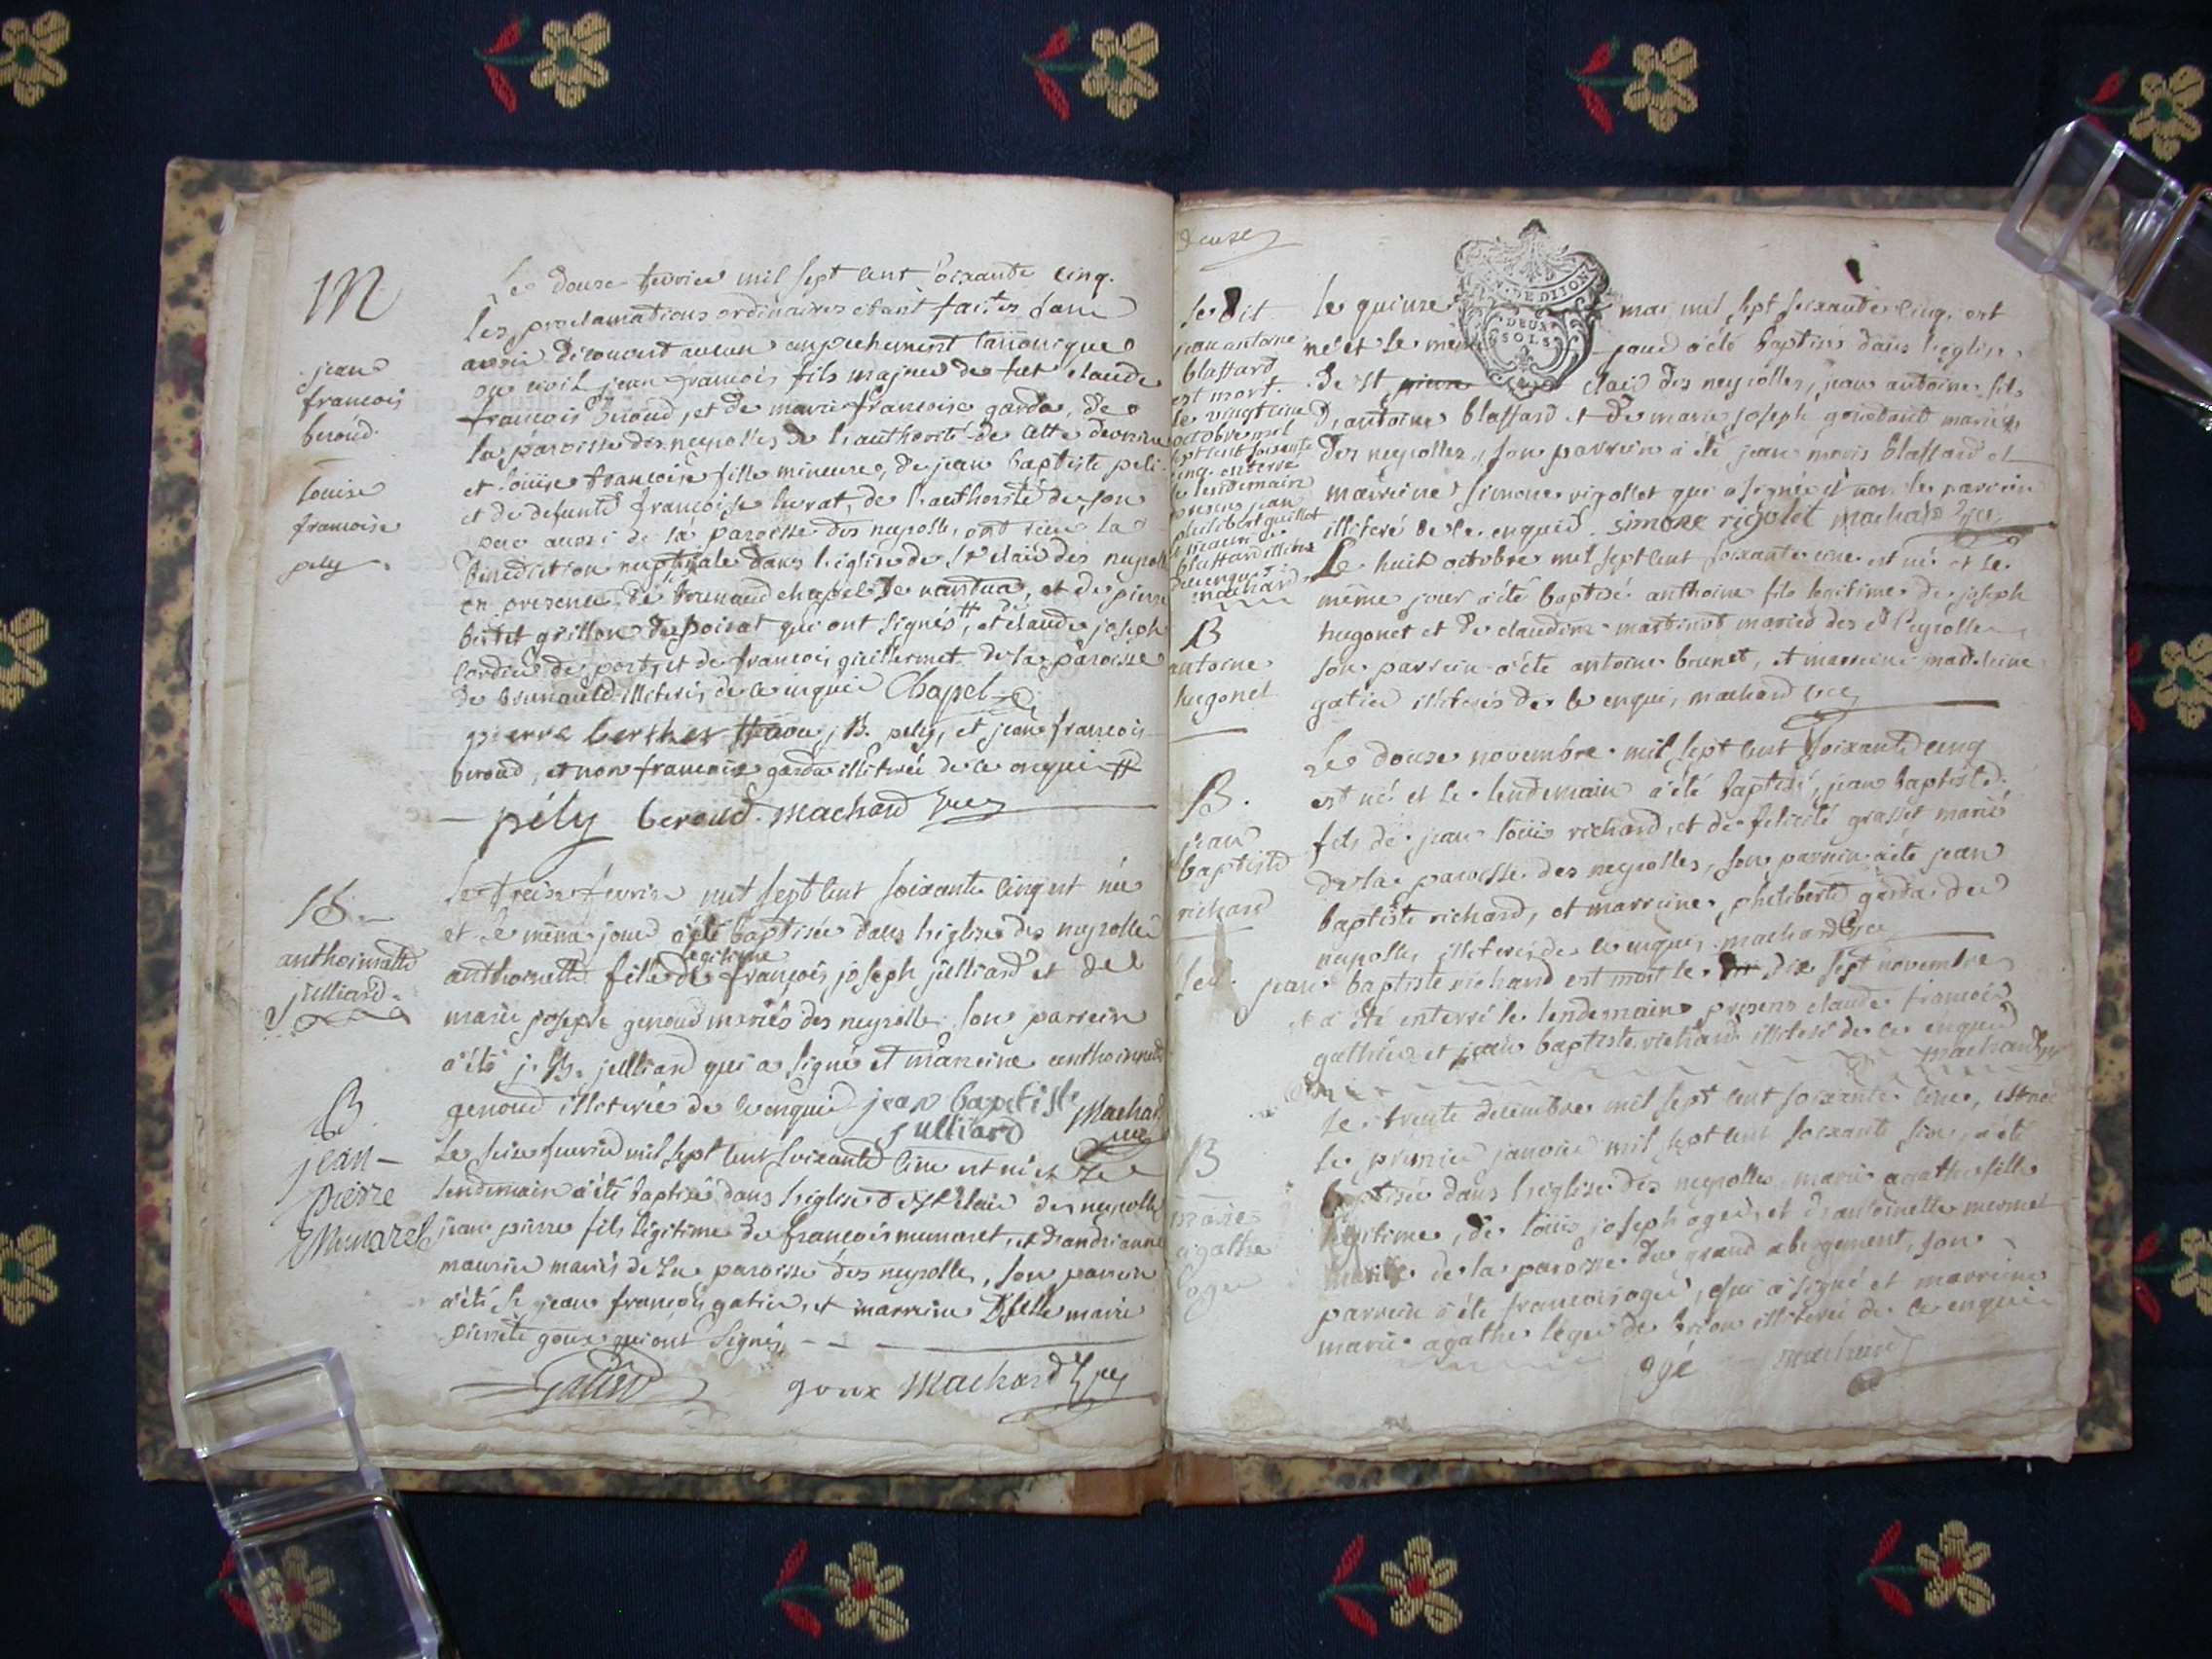 M
jean
francois
beroud
louise
francoise
pely
Le douze fevrier mil sept cent soixante cinq.
les proclamations ordinaires etant faites sans
avoir decouvert aucun empechement cannonique
ou civil jean francois fils majeur de fut claude
francois beroud, et de marie francoise garda, de
la paroisse des neyrolles de l'authorité de cette derniere
et louise francoise fille mineure, de jean baptiste peli
et de defunte francoise livrat, de l'authorité de son
pere aussi de la paroisse des neyrolles, ont recu la
benediction nuptiale dans l'eglise de st clair des neyrolles
en presence de brunaud chapel de nantua, et de pierre
bertet grillon du poisat qui ont signés #, et de claude joseph
cordier de port, et de francois guillermet de la paroisse
de illiterés de ce enquis Chapel
pierre berthet # avec j B. pely, et jean francois
beroud, et non francoise garda illiterée de ce enquis #
pely beroud. machard
B
anthoinette
julliard
Le treize fevrier mil sept cent soixante cinq est née
et le meme jour a été baptisée dans l'eglise des neyrolles
legitime
anthoinette fille de francois joseph julliard et de
marie josephe genoud mariés des neyrolles son parrein
a été j. B. julliard qui a signé et marreine anthoinette
genoud illiterée de ce enquis jean baptiste Machard
julliard
B
jean
pierre
Munaret
Le seize fevrier mil sept cent soixante cinq est né et le
lendemain a été baptisé dans l'eglise de st clair des neyrolles
jean pierre fils légitime de francois munaret, et d'andrianne
maurier mariés de la paroisse des neyrolles, son parrein
a été sr jean francois gatier, et marreine Dselle marie
pierrete goux qui ont signés
Gatier goux Machard
douze
le dit
jean antoine
blaffard
est mort
le vingt cinq
octobre mil
sept cent soixante
cinq. enterré
le lendemain
presens jean
philibert guillot
blaffard illiterés
de ce enquis
machard
DE DIJON
DEUX
SOLS
le quinze mai mil sept soixante cinq. est
né et le meme jour a été baptisé dans l'eglise
de st pierre clair des neyrolles, jean antoine fils
d'antoine blaffard et de marie joseph goudant mariés
des neyrolles, son parrein a été jean maris blaffard et
marreine simone rigollet qui a signée et non le parrein
illiteré de ce enquis. simone rigolet machard
B
antoine
hugonet
Le huit octobre mil sept cent soixante cinq est né et le
même jour a été baptisé anthoine fils legitime de joseph
hugonet et de claudine martinet mariés des neyrolles
son parrein a été antoine brunet, et marreine madeleine
gatier illiterés de ce enquis, machard
B.
jean
baptiste
richard
Le douze novembre mil sept cent soixante cinq
est né et le lendemain a été baptisé, jean baptiste
fils de jean louis richard, et de felicité grasset mariés
de la paroisse des neyrolles, son parrein a été jean
baptiste richard, et marreine, philiberte garda des
neyrolles illiterés de ce enquis. machard
led. jean baptiste richard est mort le dix sept novembre
et a été enterré le lendemain presens claude francois
gathier et jean baptiste richard illiteré de ce enquis
machard
B
marie
agathe
oger
Le trente decembre mil sept cent soixante cinq, est née
le premier janvier mil sept cent soixante six, a été
baptisée dans l'eglise des neyrolles marie agathe fille
legitime, de louis joseph oger, et d'antoinette mermet
mariés de la paroisse du grand abergement, son
parrein a été francois oger, qui a signé et marreine
marie agathe léger de brion illiterée de ce enquis
ogé machard